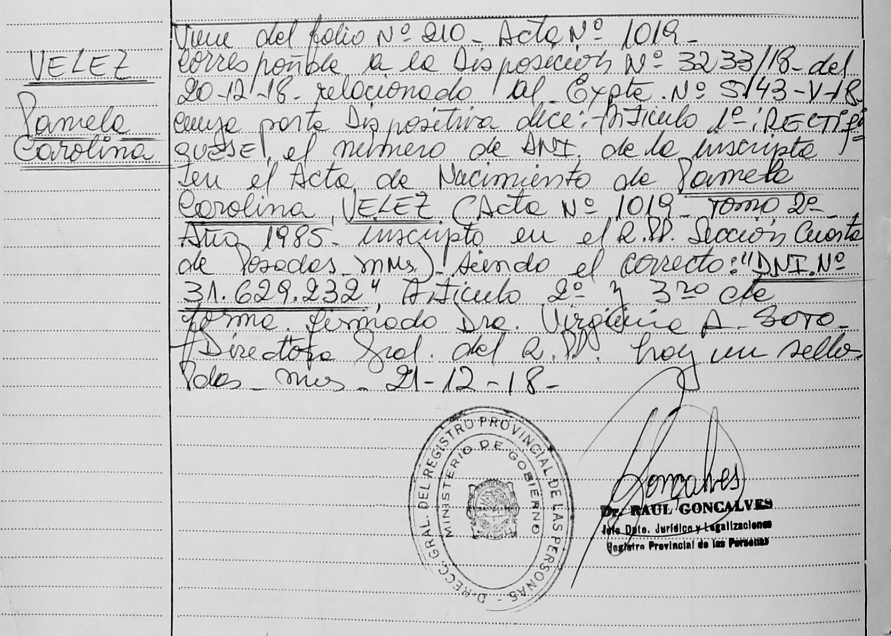 VELEZ
Pamela
Carolina
Viene del folio Nº 210 - Acta Nº 1019 -
Corresponde a la Disposición Nº 3233/18 - del
20-12-18 - relacionado al Expte. Nº 5143-V-18
cuya parte Dispositiva dice: Artículo 1º: RECTIFI
QUESE, el número de DNI, de la inscripta
en el Acta de Nacimiento de Pamela
Carolina VELEZ (Acta Nº 1019 - Tomo 2º -
Año 1985 - inscripto en el R.PP. Sección Cuarta
de Posadas - Mns) - siendo el correcto: "DNI. Nº
31.629.232" Artículo 2º y 3ro de
forma. firmado Dra. Virginia A. SOTO -
Directora Gral. del R.PP. hoy un sello
Pdas - Mns - 21-12-18 -
DIRECC. GRAL. DEL REGISTRO PROVINCIAL DE LAS PERSONAS -
MINISTERIO DE GOBIERNO
Goncalves
Dr. RAUL GONCALVES
Jefe Dpto. Jurídico y Legalizaciones
Registro Provincial de las Personas